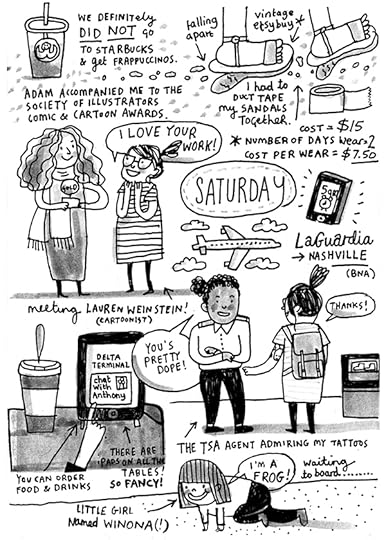 WE DEFINITELY
DID NOT GO
TO STARBUCKS
& get FRAPPUCCINOS.
falling
apart
vintage
etsy buy*
I had to
DUCT TAPE
my SANDALS
TOGETHER.
ADAM ACCOMPANIED ME TO THE
SOCIETY OF ILLUSTRATORS
COMIC & CARTOON AWARDS.
COST = $15
* NUMBER OF DAYS WORN = 2
COST PER WEAR = $7.50
I LOVE YOUR
WORK!
GOLD
SATURDAY
5am
LaGuardia
→ NASHVILLE
(BNA)
meeting LAUREN WEINSTEIN!
(CARTOONIST)
YOU'S
PRETTY
DOPE!
THANKS!
DELTA
TERMINAL
chat
with
Anthony
YOU CAN ORDER
FOOD & DRINKS
THERE ARE
iPADS ON ALL THE
TABLES!
SO FANCY!
THE TSA AGENT ADMIRING MY TATTOOS
I'M A
FROG!
waiting
to board.........
LITTLE GIRL
Named WINONA(!)